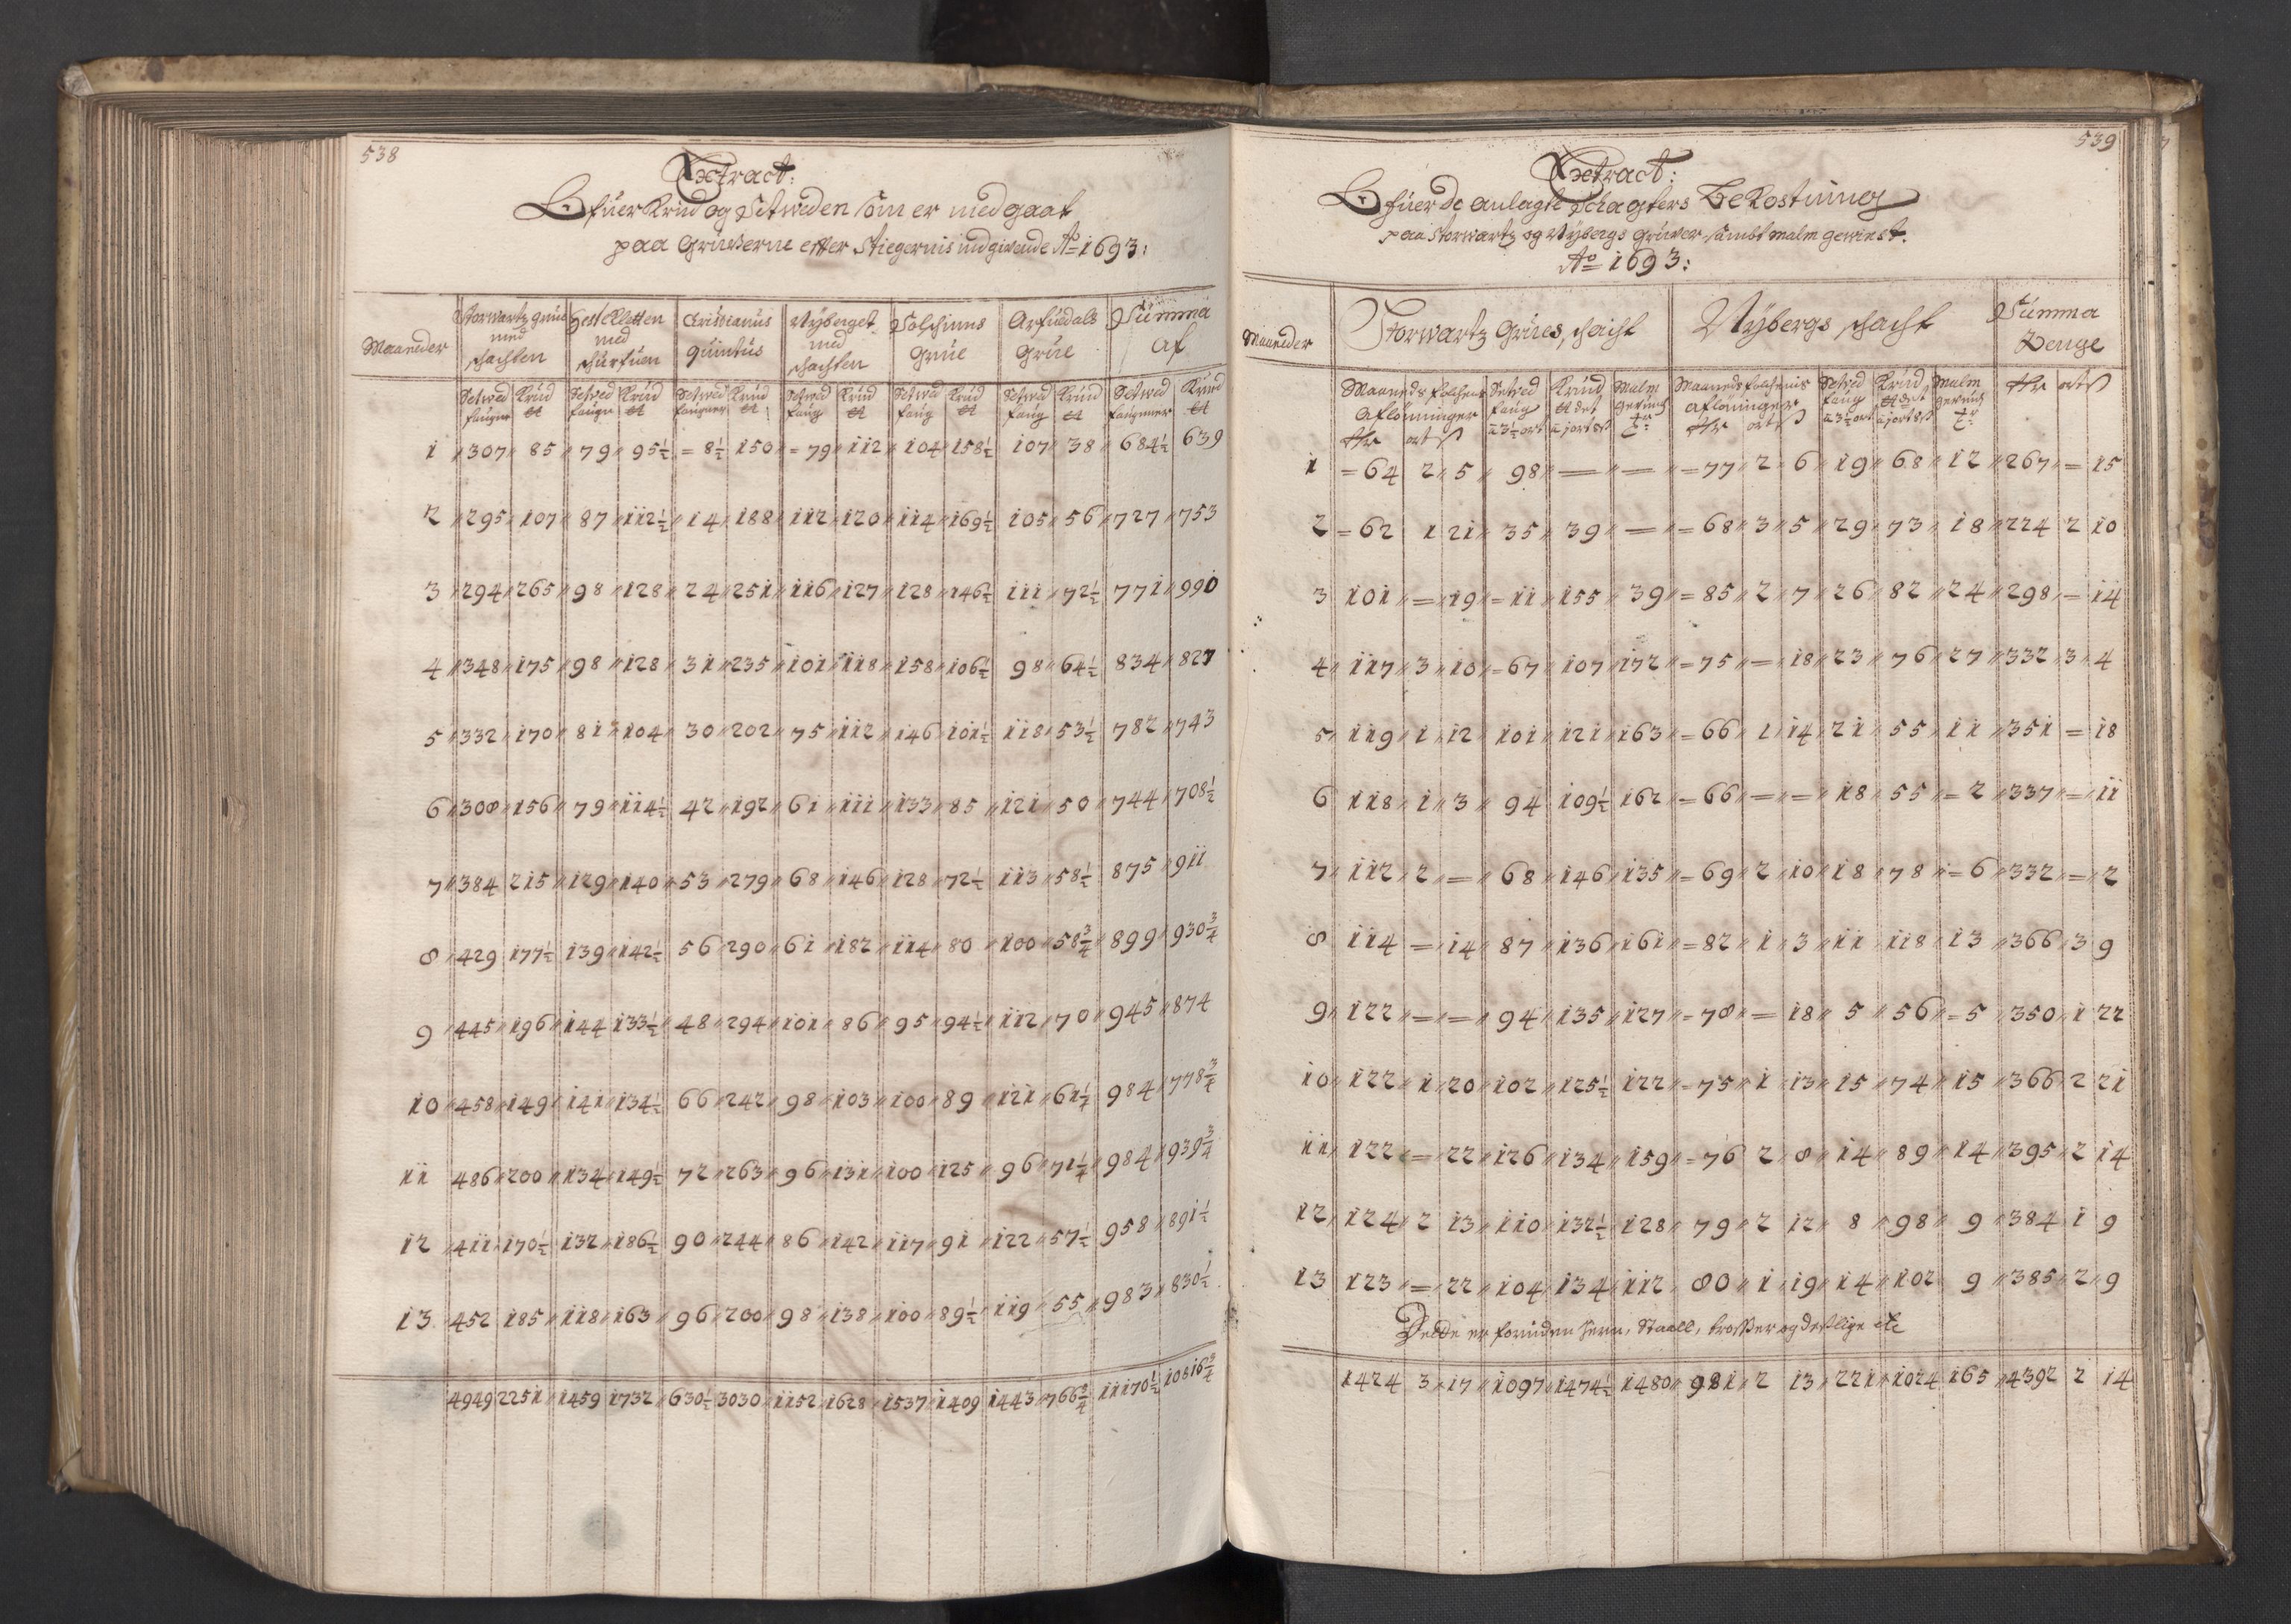 538
Extract:
Ofuer Krud og Setweden som er medgaat
paa Gruberne effter Stiegernis indgivende Ao 1693:
Maaneder | Storwartz grue med schachten | Hestekletten med schurfuen | Cristianus quintus | Nÿberget med schachten | Solchinns Grue | Arfuedals Grue | Summa af
Setwed faugner | Krud ℔ | Setwed faugn | Krud ℔ | Setwed faugner | Krud ℔ | Setwed faug | Krud ℔ | Setwed faug | Krud ℔ | Setwed faug | Krud ℔ | Setwed faugnner | Krud ℔
1 | 307 | 85 | 79 | 95½ | 8½ | 150 | 79 | 112 | 104 | 158½ | 107 | 38 | 684½ | 639
2 | 295 | 107 | 87 | 112½ | 14 | 188 | 112 | 120 | 114 | 169½ | 105 | 56 | 727 | 753
3 | 294 | 265 | 98 | 128 | 24 | 251 | 116 | 127 | 128 | 146½ | 111 | 72½ | 771 | 990
4 | 348 | 175 | 98 | 128 | 31 | 235 | 101 | 118 | 158 | 106½ | 98 | 64½ | 834 | 827
5 | 332 | 170 | 81 | 104 | 30 | 202 | 75 | 112 | 146 | 101½ | 118 | 53½ | 782 | 743
6 | 308 | 156 | 79 | 114½ | 42 | 192 | 61 | 111 | 133 | 85 | 121 | 50 | 744 | 708½
7 | 384 | 215 | 129 | 140 | 53 | 279 | 68 | 146 | 128 | 72½ | 113 | 58½ | 875 | 911
8 | 429 | 177½ | 139 | 142½ | 56 | 290 | 61 | 182 | 114 | 80 | 100 | 58¾ | 899 | 930¾
9 | 445 | 196 | 144 | 133½ | 48 | 294 | 101 | 86 | 95 | 94½ | 112 | 70 | 945 | 874
10 | 458 | 149 | 141 | 134½ | 66 | 242 | 98 | 103 | 100 | 89 | 121 | 61¼ | 984 | 778¾
11 | 486 | 200 | 134 | 149½ | 72 | 263 | 96 | 131 | 100 | 125 | 96 | 71¼ | 984 | 939¾
12 | 411 | 170½ | 132 | 186½ | 90 | 244 | 86 | 142 | 117 | 91 | 122 | 57½ | 958 | 891½
13 | 452 | 185 | 118 | 163 | 96 | 200 | 98 | 138 | 100 | 89½ | 119 | 55 | 983 | 830½
4949 | 2251 | 1459 | 1732 | 630½ | 3030 | 1152 | 1628 | 1537 | 1409 | 1443 | 766¾ | 11170½ | 10816¾
539
Extract:
Ofuer de anlagte Schagters Bekostning
paa Storwartz og Nÿbergs Gruver sambt malm gewinst.
Ao 1693:
Maaneder | Storwartz Grues schacht | Nÿbergs schacht | Summa Penge
Maaneds folchens Aflönninger | Setwed faug a 3½ ort | Krud | Malm | Maaneds folchenis aflöninger | Setwed faug a 3½ ort | Krud | Malm | ort ß
1 | = 64 | 2 | 5 | 98 | — | — | = 77 | 2 | 6 | 19 | 68 | 12 | 267 | = | 15
2 | = 62 | 1 | 21 | 35 | 39 | — | = 68 | 3 | 5 | 29 | 73 | 18 | 224 | 2 | 10
3 | 101 | = | 19 | = 11 | 155 | 39 | = 85 | 2 | 7 | 26 | 82 | 24 | 298 | = | 14
4 | 117 | 3 | 10 | = 67 | 107 | 172 | = 75 | = | 18 | 23 | 76 | 27 | 332 | 3 | 4
5 | 119 | 1 | 12 | 101 | 121 | 163 | = 66 | 1 | 14 | 21 | 55 | 11 | 351 | = | 18
6 | 118 | 1 | 3 | 94 | 109½ | 162 | = 66 | = | = | 18 | 55 | = 2 | 337 | = | 11
7 | 112 | 2 | = | 68 | 146 | 135 | = 69 | 2 | 10 | 18 | 78 | = 6 | 332 | = | 2
8 | 114 | = | 14 | 87 | 136 | 161 | = 82 | 1 | 3 | 11 | 118 | 13 | 366 | 3 | 9
9 | 122 | = | = | 94 | 135 | 127 | = 78 | = | 18 | 5 | 56 | = 5 | 350 | 1 | 22
10 | 122 | 1 | 20 | 102 | 125½ | 122 | = 75 | 1 | 13 | 15 | 74 | 15 | 366 | 2 | 21
11 | 122 | = | 22 | 126 | 134 | 159 | = 76 | 2 | 8 | 14 | 89 | 14 | 395 | 2 | 14
12 | 124 | 2 | 13 | 110 | 132½ | 128 | 79 | 2 | 12 | 8 | 98 | 9 | 384 | 1 | 9
13 | 123 | = | 22 | 104 | 134 | 112 | 80 | 1 | 19 | 14 | 102 | 9 | 385 | 2 | 9
Dette er foruden Jern, Staall, trosser og deslige etc
1424 | 3 | 17 | 1097 | 1474½ | 1480 | 981 | 2 | 13 | 221 | 1024 | 165 | 4392 | 2 | 14